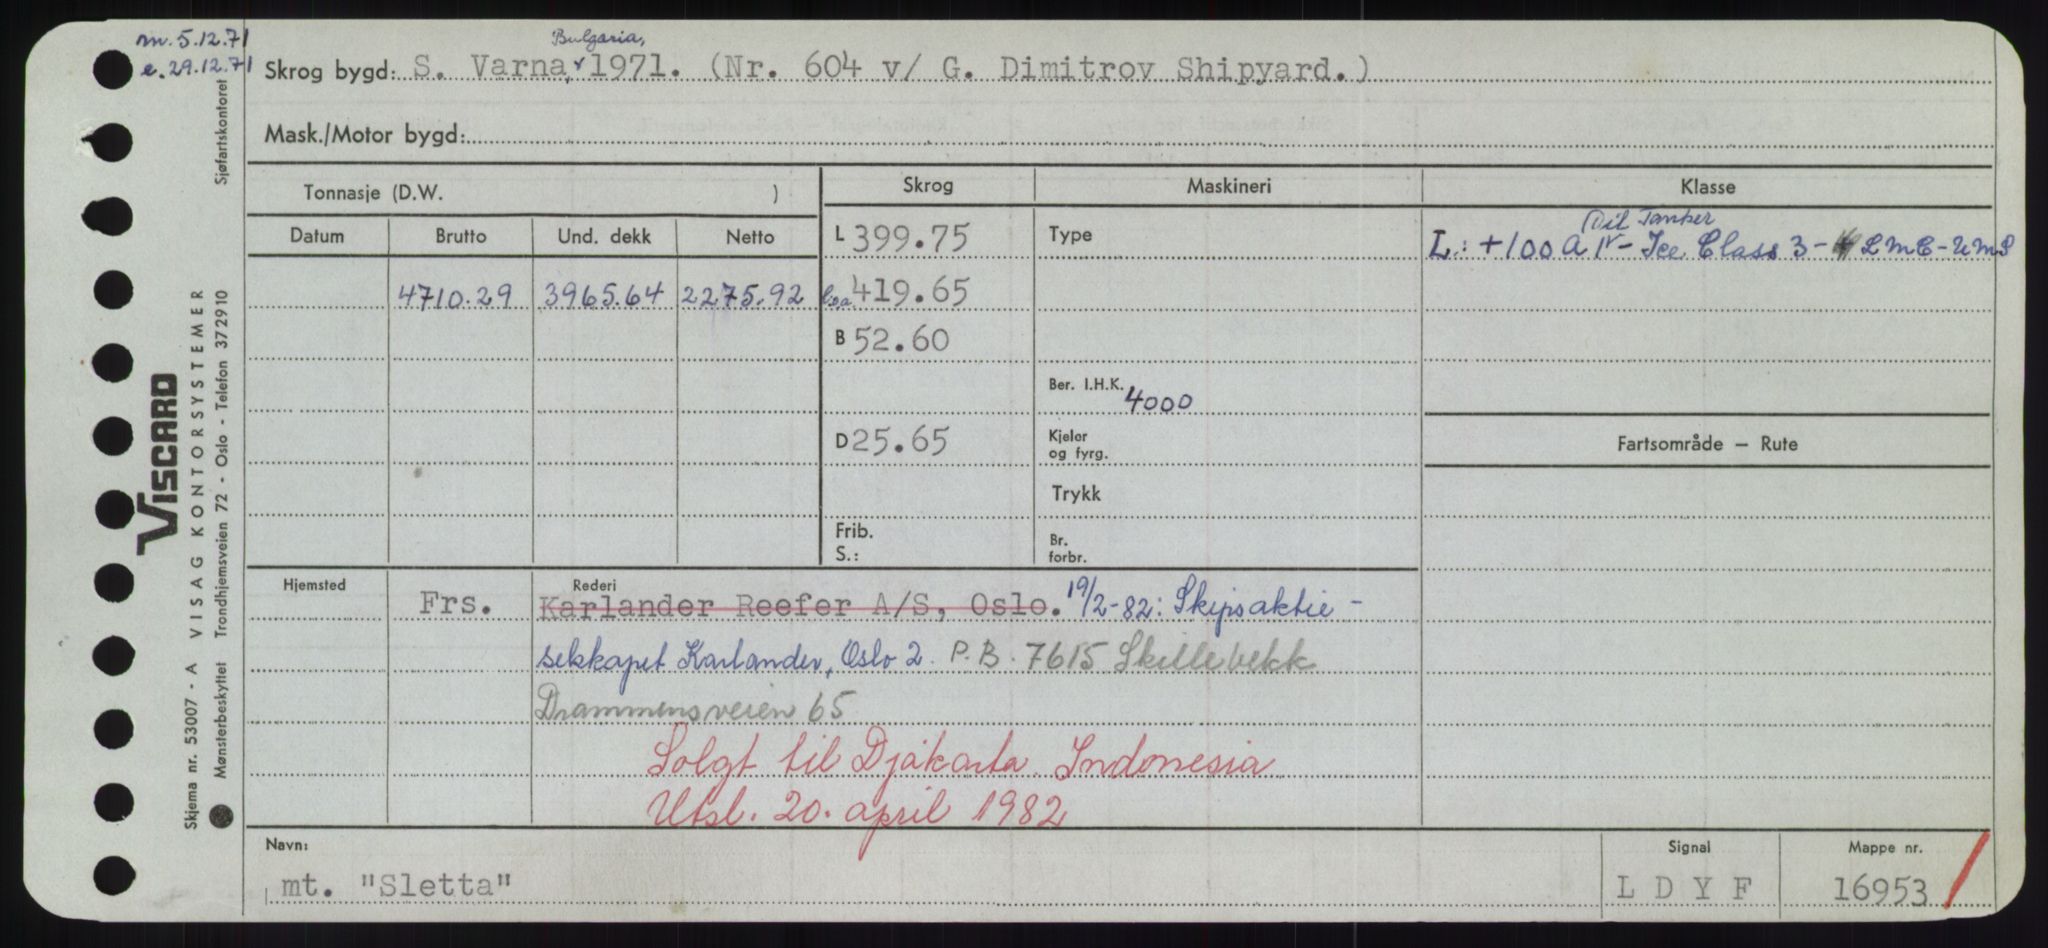 m. 5.12.71
e. 29.12.71
Bulgaria,
Skrog bygd: S. Varna, 1971. (Nr. 604 v/ G. Dimitrov Shipyard.)
Mask./Motor bygd:
Tonnasje (D.W. )
Skrog Maskineri Klasse
Datum Brutto Und. dekk Netto
L 399.75 Type
Oil Tanker
L: +100 A 1 - Ice Class 3 - LMC - UMS
4710.29 3965.64 2275.92 loa 419.65
B 52.60
Ber. I.H.K. 4000
D 25.65 Kjeler og fyrg.
Fartsområde — Rute
Trykk
Frib.
S.:
Br. forbr.
Hjemsted Rederi
Frs. Karlander Reefer A/S, Oslo. 19/2-82: Skipsaktie-
selskapet Karlander, Oslo 2. P.B. 7615 Skillebekk
Drammensveien 65
Solgt til Djakarta Indonesia
Utsl. 20. april 1982
Navn: Signal Mappe nr.
mt. "Sletta" L D Y F 16953
VISCARD
Skjema nr. 53007 - A VISAG KONTORSYSTEMER
Mønsterbeskyttet Trondhjemsveien 72 - Oslo - Telefon 372910 Sjøfartskontoret